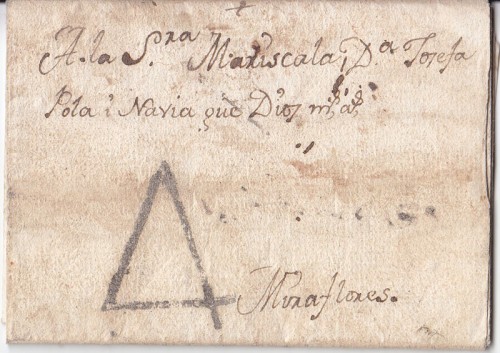 +
A. la S.ra Mariscala, D.a Josefa
Pola i Navia que Dios m.s a.s
4
Miraflores.